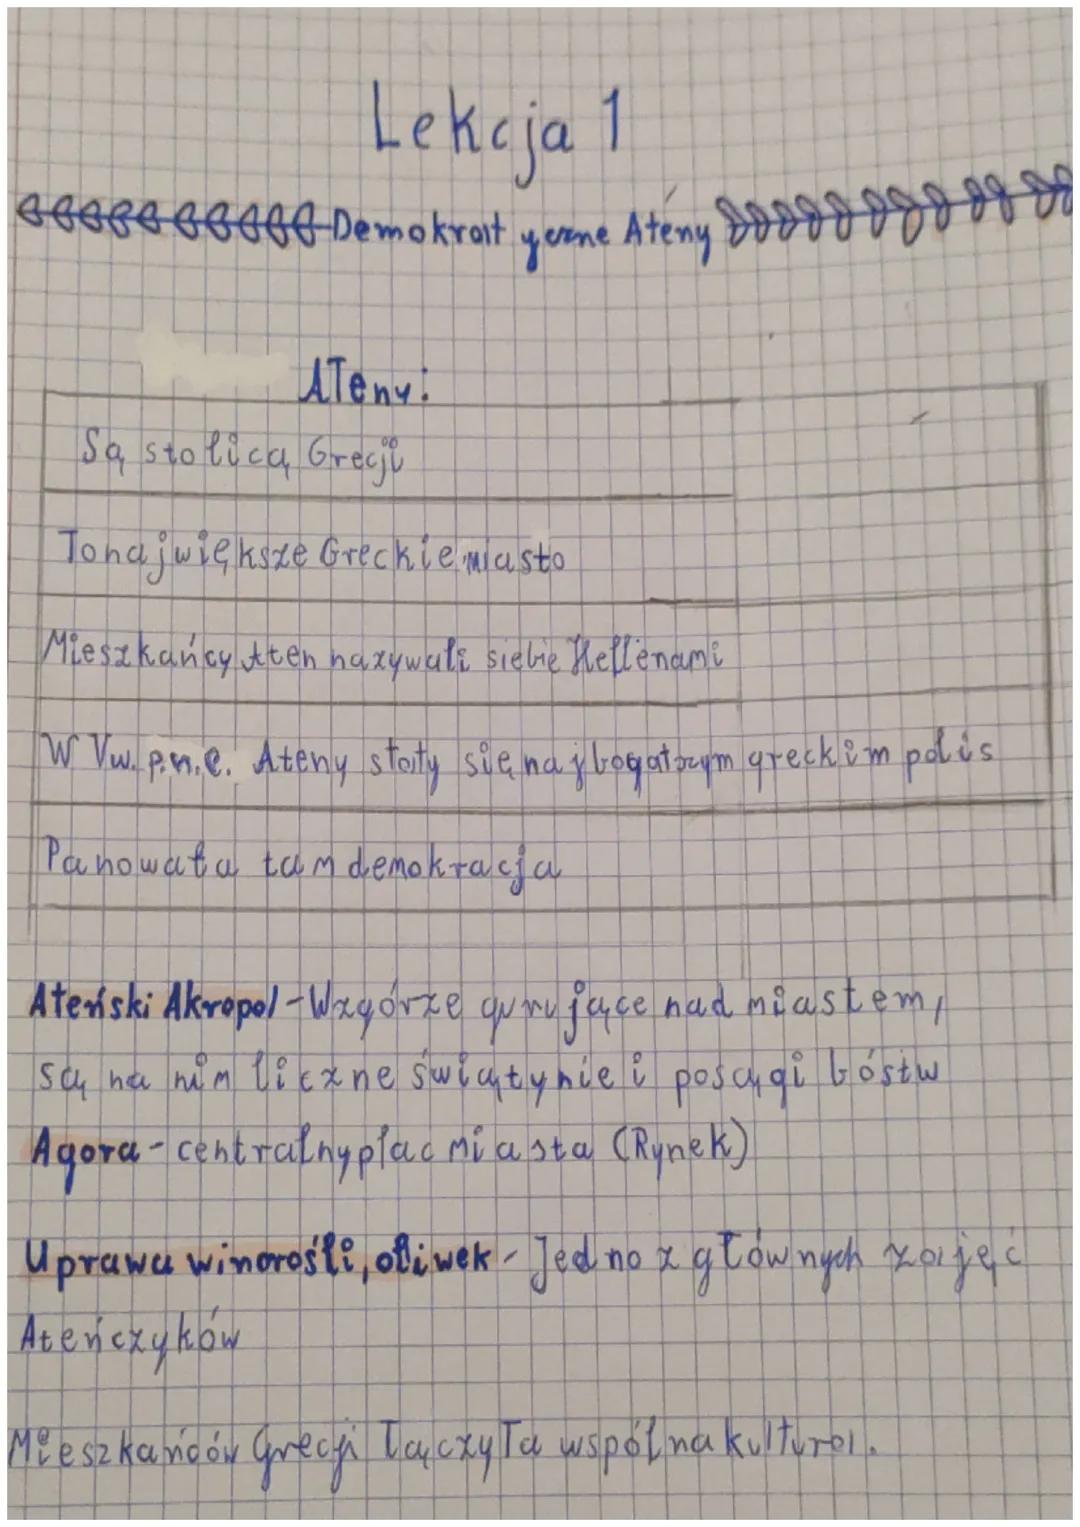 Lekcja 1
Demokratyczne Ateny
Ateny:
Są stolicą Grecji
To największe Greckie miasto
Mieszkańcy Aten nazywali siebie Hellenami
W V w. p.n.e. Ateny stały się najbogatszym greckim polis
Panowała tam demokracja
Ateński Akropol - Wzgórze gurujące nad miastem,
są na nim liczne świątynie i posągi bóstw
Agora - centralny plac miasta (Rynek)
Uprawa winorośli, oliwek - Jedno z głównych zajęć
Ateńczyków
Mieszkańców Grecji łączyła wspólna kultura.